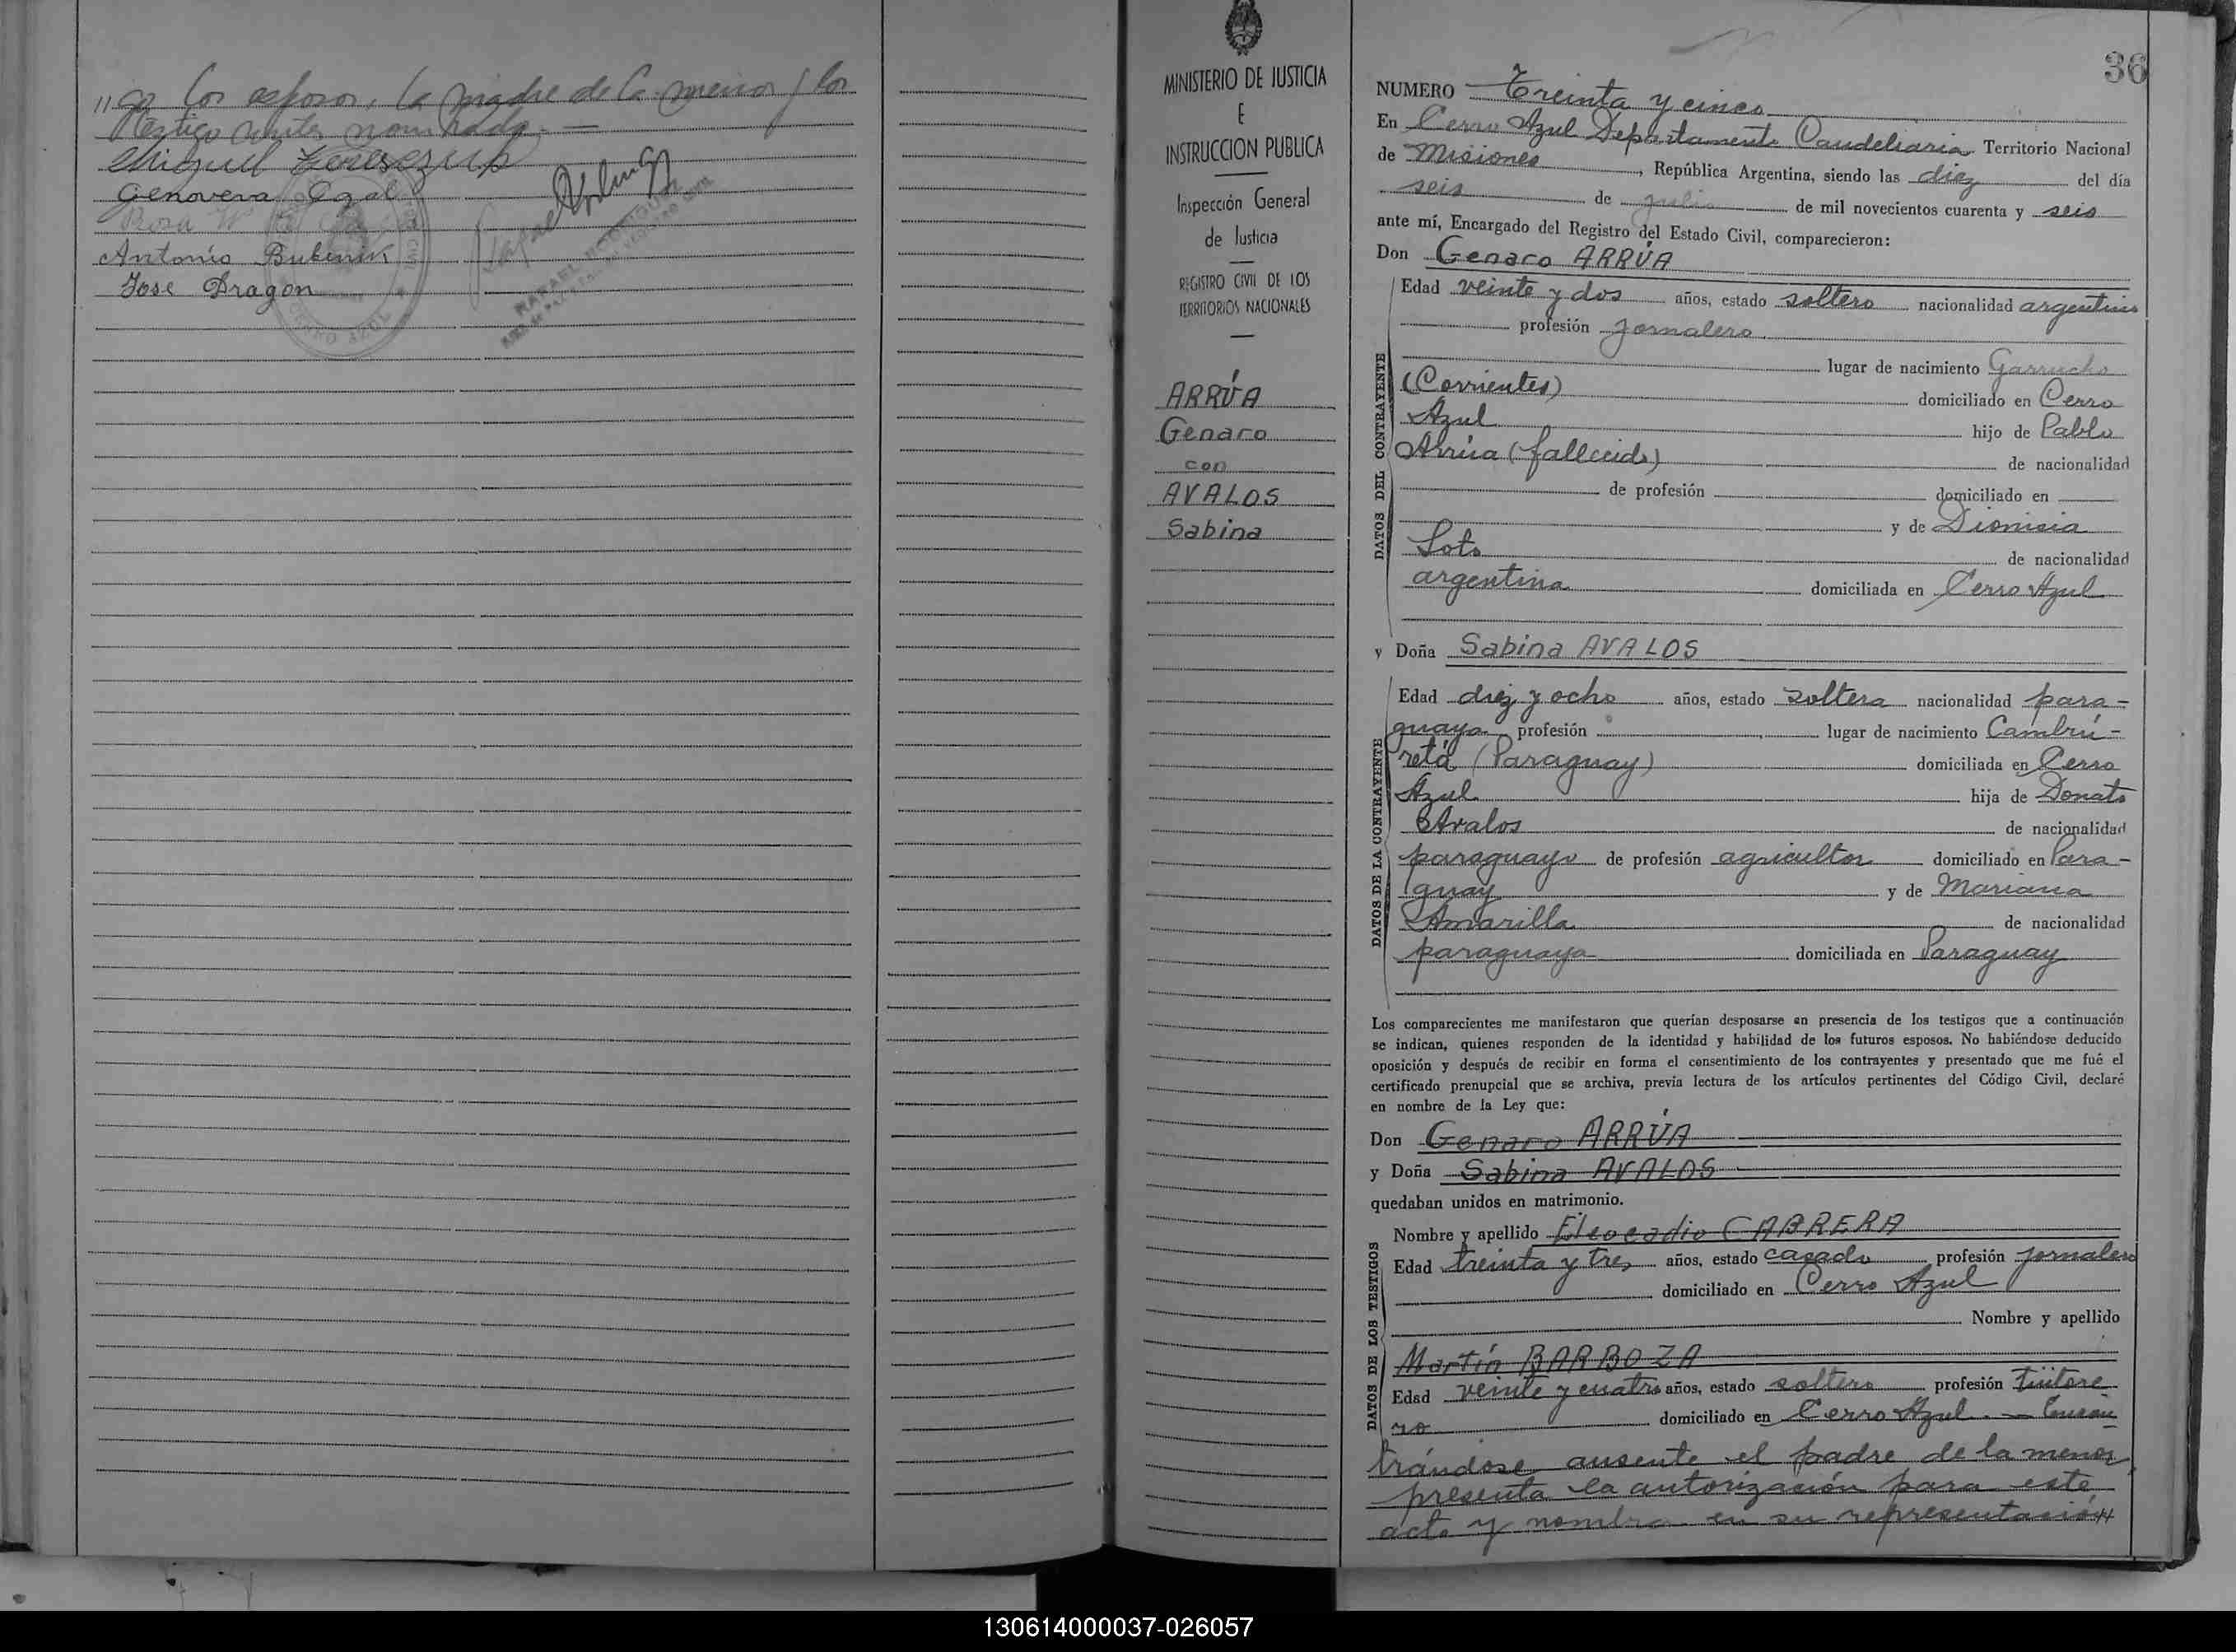 "go los esposos, la madre de la menor y los
testigo antes nombrado. —
Miguel
Genoveva
Rosa
Antonio Bubenik
José Dragon
RAFAEL
CERRO AZUL
MINISTERIO DE JUSTICIA
E
INSTRUCCION PUBLICA
Inspección General
de Justicia
REGISTRO CIVIL DE LOS
TERRITORIOS NACIONALES
ARRÚA
Genaro
con
AVALOS
Sabina
36
NUMERO Treinta y cinco
En Cerro Azul Departamento Candelaria Territorio Nacional
de Misiones, República Argentina, siendo las diez del día
seis de julio de mil novecientos cuarenta y seis
ante mí, Encargado del Registro del Estado Civil, comparecieron:
Don Genaro ARRÚA
DATOS DEL CONTRAYENTE
Edad veinte y dos años, estado soltero nacionalidad argentino
profesión jornalero
lugar de nacimiento Garruchos
(Corrientes) domiciliado en Cerro
Azul hijo de Pablo
Arrúa (fallecido) de nacionalidad
de profesión domiciliado en
y de Dionisia
Soto de nacionalidad
argentina domiciliada en Cerro Azul
y Doña Sabina AVALOS
DATOS DE LA CONTRAYENTE
Edad diez y ocho años, estado soltera nacionalidad para-
guaya profesión lugar de nacimiento Cambrú-
retá (Paraguay) domiciliada en Cerro
Azul hija de Donato
Avalos de nacionalidad
paraguayo de profesión agricultor domiciliado en Para-
guay y de Mariana
Amarilla de nacionalidad
paraguaya domiciliada en Paraguay
Los comparecientes me manifestaron que querían desposarse en presencia de los testigos que a continuación
se indican, quienes responden de la identidad y habilidad de los futuros esposos. No habiéndose deducido
oposición y después de recibir en forma el consentimiento de los contrayentes y presentado que me fué el
certificado prenupcial que se archiva, previa lectura de los artículos pertinentes del Código Civil, declaré
en nombre de la Ley que:
Don Genaro ARRÚA
y Doña Sabina AVALOS
quedaban unidos en matrimonio.
DATOS DE LOS TESTIGOS
Nombre y apellido Eleocadio CABRERA
Edad treinta y tres años, estado casado profesión jornalero
domiciliado en Cerro Azul
Nombre y apellido
Martín BARBOZA
Edad veinte y cuatro años, estado soltero profesión tintore-
ro domiciliado en Cerro Azul. — Encon-
trándose ausente el padre de la menor,
presenta la autorización para este
acto y nombra en su representación"
130614000037-026057